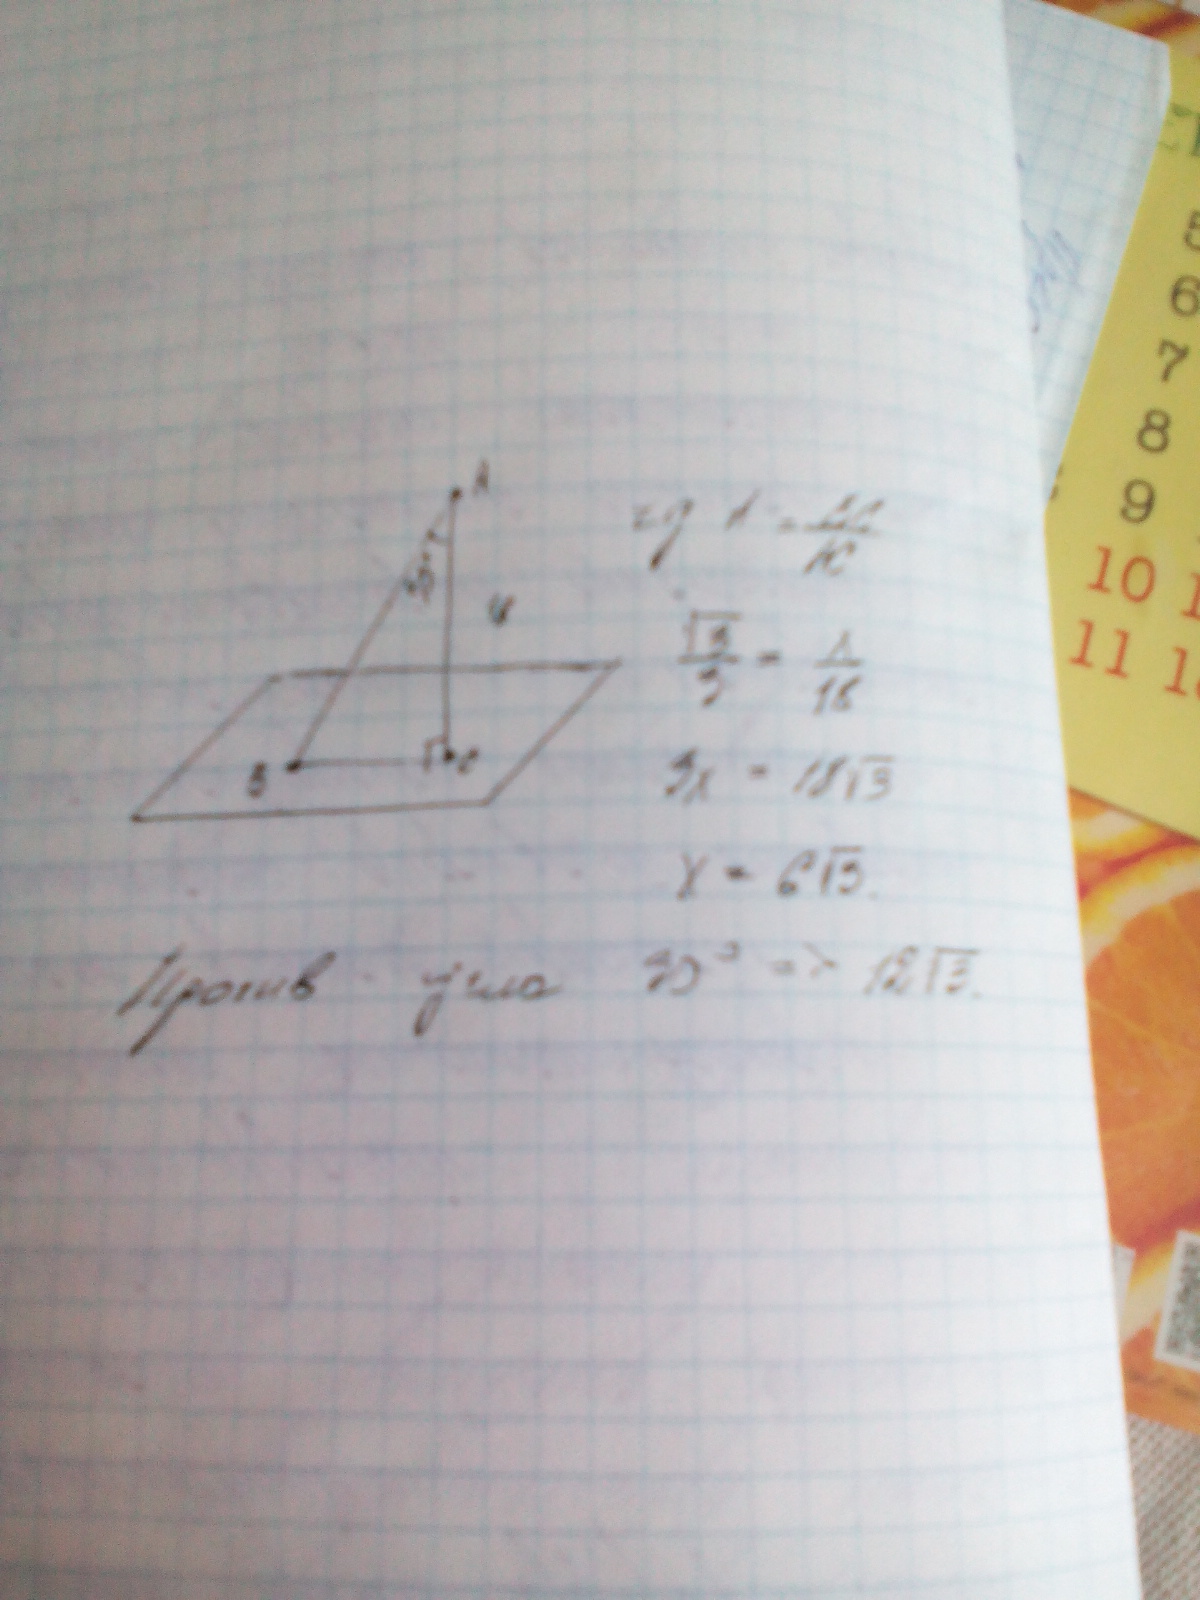 A
30°
B
C
tg A = BC/AC
√3/3 = x/18
3x = 18√3
x = 6√3.
Против угла 30° => 12√3.
5
6
7
8
9
10
11